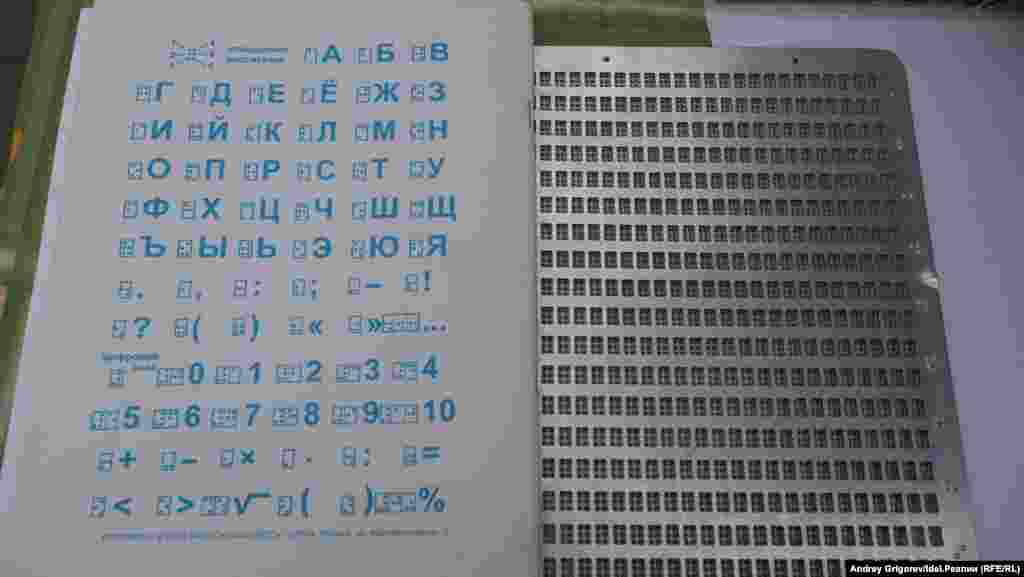 А Б В
Г Д Е Ё Ж З
И Й К Л М Н
О П Р С Т У
Ф Х Ц Ч Ш Щ
Ъ Ы Ь Э Ю Я
. , : ; – !
? ( ) « » ...
Цифровой знак 0 1 2 3 4
5 6 7 8 9 10
+ – × · : =
< > √ ( ) %
Andrey Grigorev/Idel.Реалии (RFE/RL)